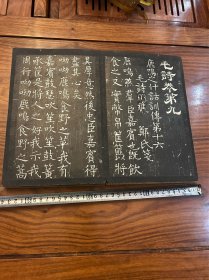 毛詩卷第九
鹿鳴之什詁訓傳第十六
毛詩小雅 鄭氏箋
鹿鳴燕羣臣嘉賓也既飲
食之又實幣帛筐篚以將
其厚意然後忠臣嘉賓得
盡其心矣
呦呦鹿鳴食野之苹我有
嘉賓鼓瑟吹笙吹笙鼓簧
承筐是將人之好我示我
周行呦呦鹿鳴食野之蒿